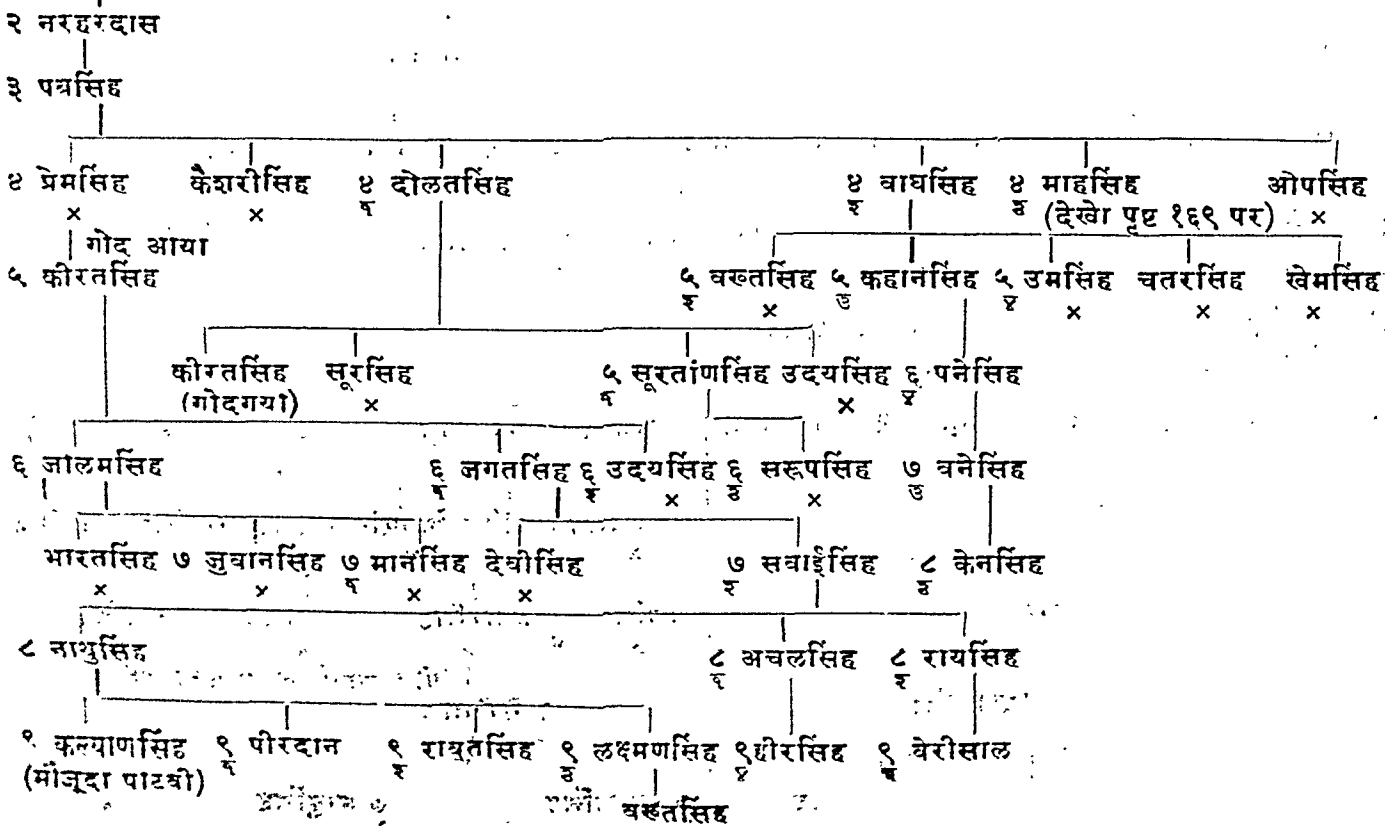 २ नरहरदास
३ पत्रसिंह
४ प्रेमसिंह कैशरीसिंह ४/१ दोलतसिंह ४/२ वाघसिंह ४/३ माहसिंह ओपसिंह
× × (देखो पृष्ट १६९ पर) ×
गोद आया
५ कीरतसिंह ५/२ वख्तसिंह ५/३ कहानसिंह ५/४ उमसिंह चतरसिंह खेमसिंह
× × × ×
कीरतसिंह सूरसिंह ५/१ सूरतांणसिंह उदयसिंह ६/४ पनेसिंह
(गोदगया) × ×
६ जालमसिंह ६/१ जगतसिंह ६/२ उदयसिंह ६/३ सरूपसिंह ७/३ वनेसिंह
× ×
भारतसिंह ७ जुवानसिंह ७/१ मानसिंह देवीसिंह ७/२ सवाईसिंह ८/३ केनसिंह
× × × ×
८ नाथुसिंह ८/१ अचलसिंह ८/२ रायसिंह
९ कल्याणसिंह ९/१ पीरदान ९/२ रावुतसिंह ९/३ लक्ष्मणसिंह ९/४ हीरसिंह ९/५ वेरीसाल
(मौजूदा पाटवी)
वख्तसिंह